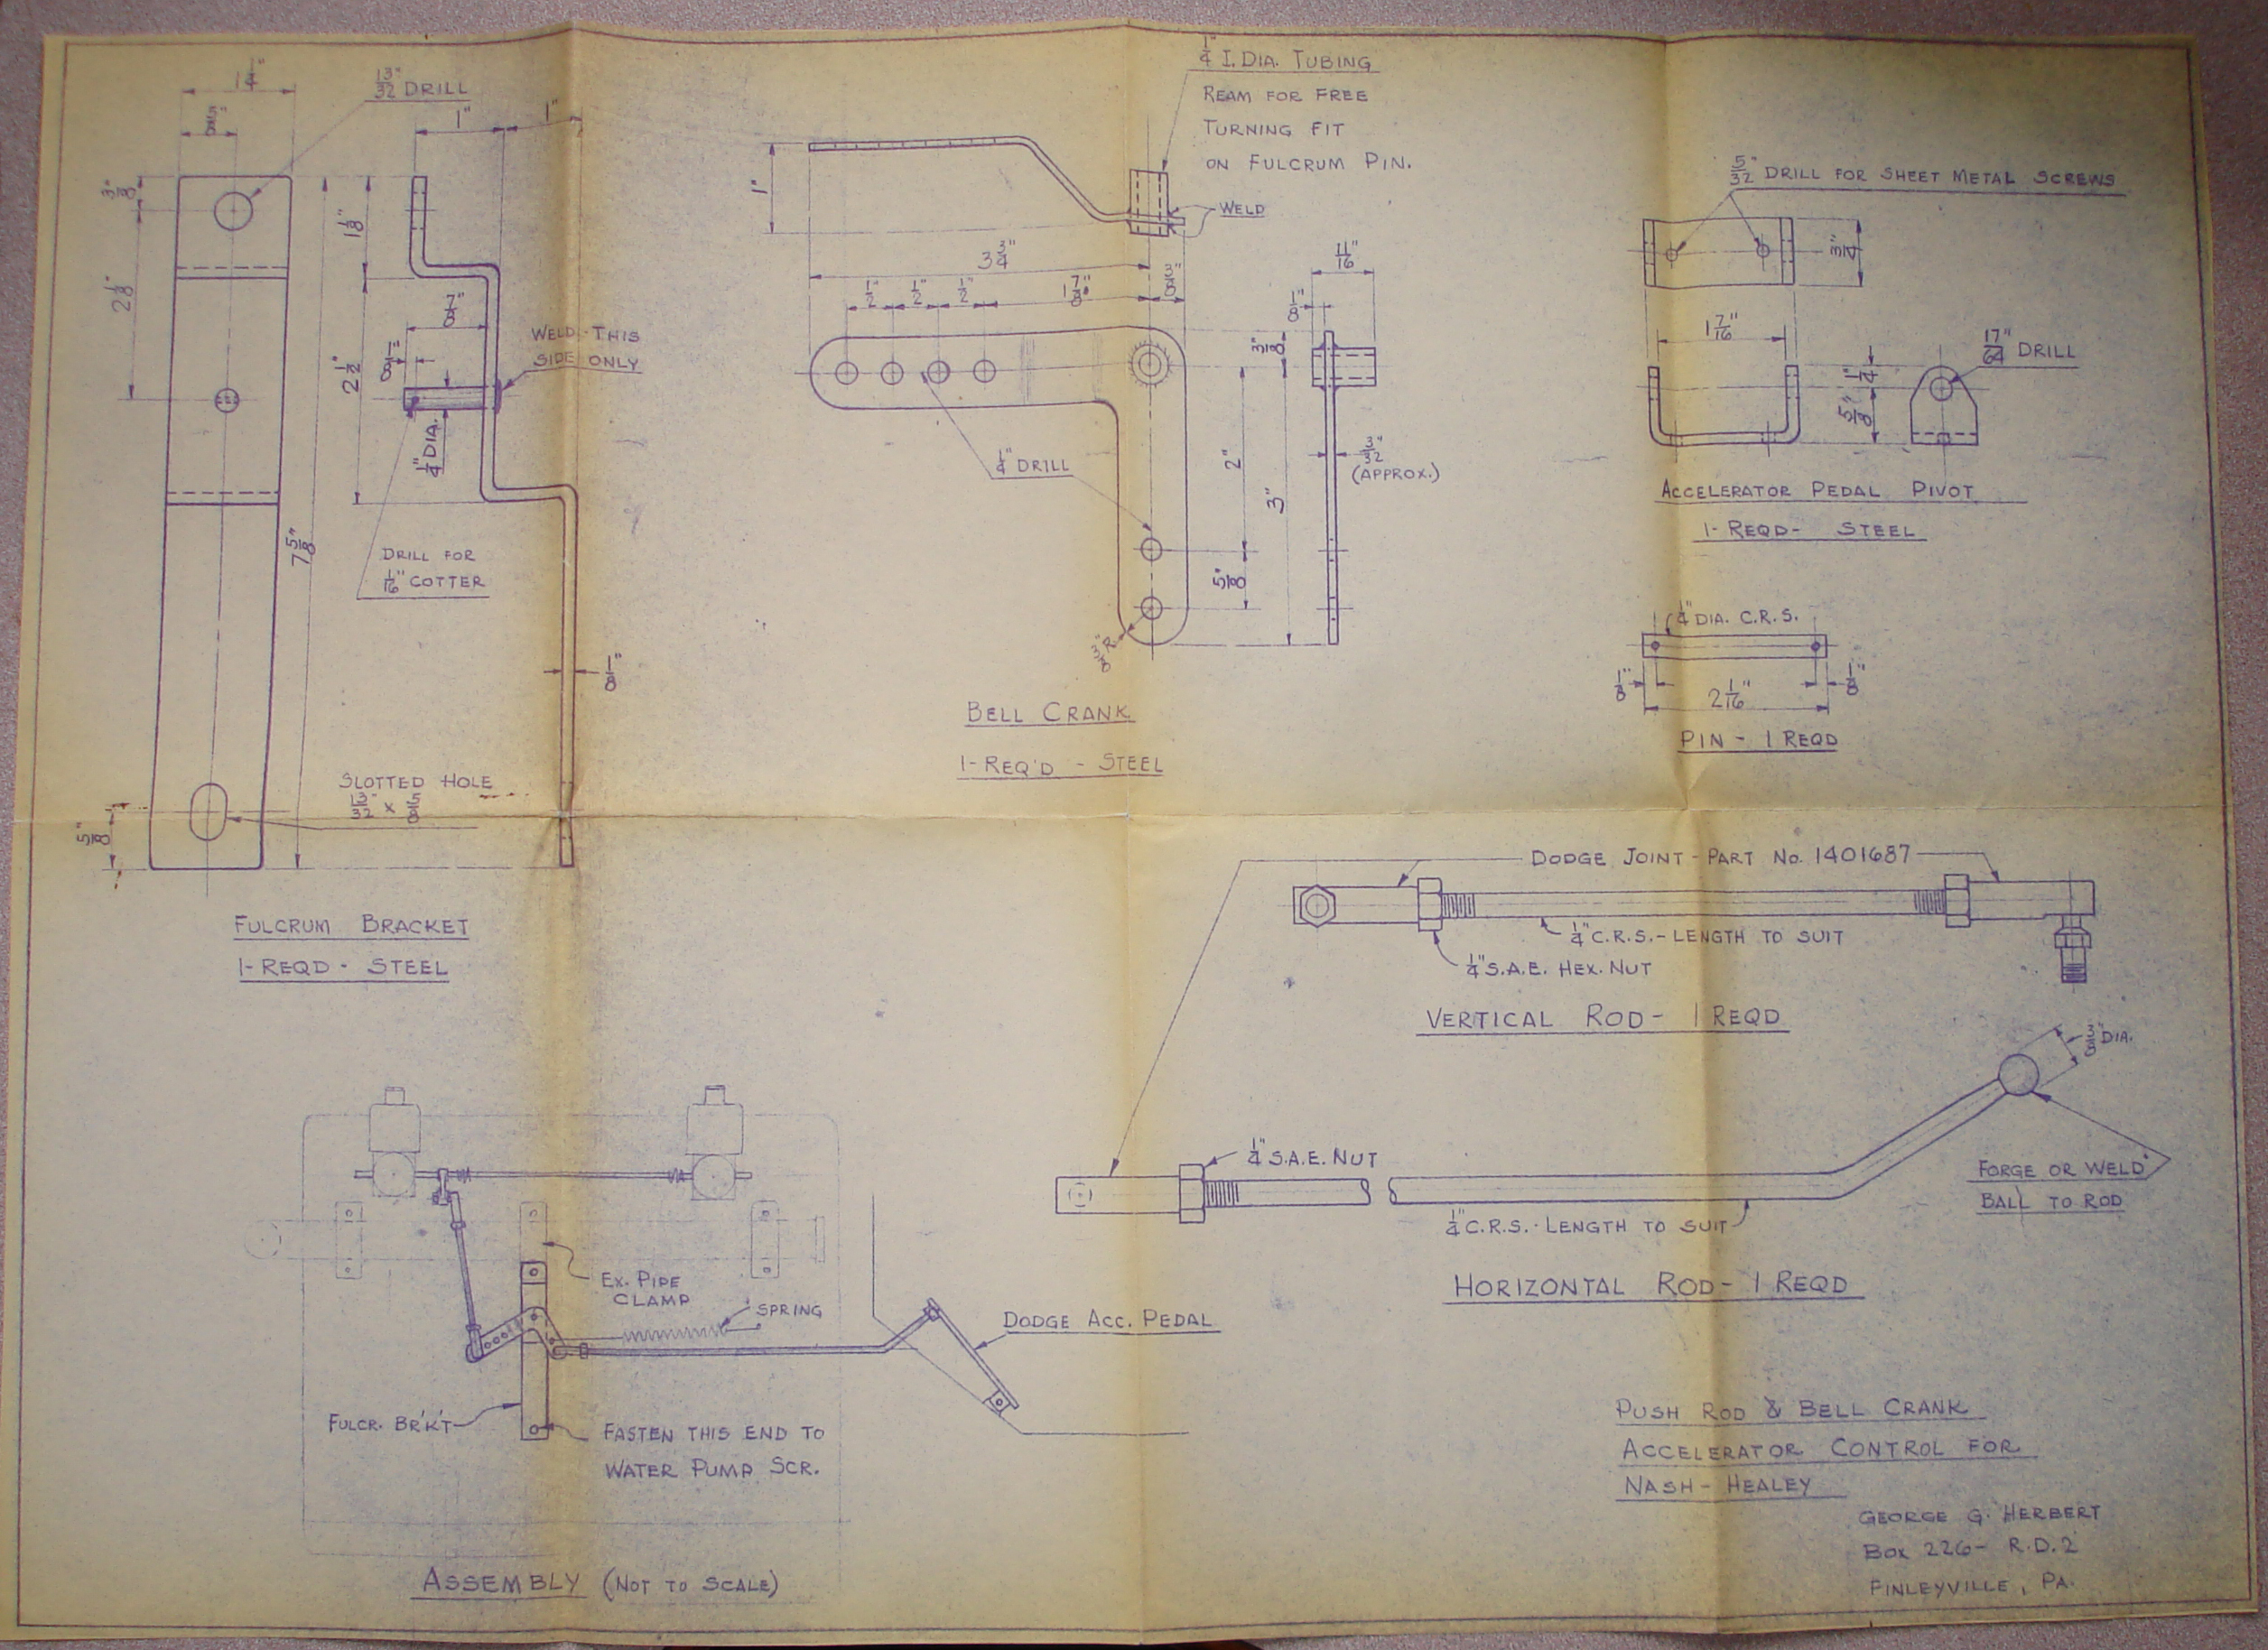 1 1/4"
5/8"
13/32" DRILL
3/8"
2 1/8"
7 5/8"
1"
1"
1 1/8"
2 1/2"
7/8"
1/8"
1/4" DIA.
WELD - THIS
SIDE ONLY
DRILL FOR
1/16" COTTER
1/8"
SLOTTED HOLE
13/32" x 5/8
5/8"
FULCRUM BRACKET
1-REQD - STEEL
1/4" I. DIA. TUBING
REAM FOR FREE
TURNING FIT
ON FULCRUM PIN.
1"
WELD
3 3/4"
1/2"
1/2"
1/2"
1 7/8"
3/8"
11/16"
1/8"
3/8"
2"
3"
3/32"
(APPROX.)
1/4" DRILL
5/8"
3/8" R
BELL CRANK
1-REQ'D - STEEL
5/32" DRILL FOR SHEET METAL SCREWS
3/4"
1 7/16"
17/64" DRILL
1/4"
5/8"
ACCELERATOR PEDAL PIVOT
1-REQD- STEEL
1/4" DIA. C.R.S.
1/8"
2 1/16"
1/8"
PIN - 1 REQD
DODGE JOINT - PART No. 1401687
1/4" C.R.S. - LENGTH TO SUIT
1/4" S.A.E. HEX. NUT
VERTICAL ROD - 1 REQD
3/8" DIA.
1/4" S.A.E. NUT
FORGE OR WELD
BALL TO ROD
1/4" C.R.S. - LENGTH TO SUIT
HORIZONTAL ROD - 1 REQD
EX. PIPE
CLAMP
SPRING
DODGE ACC. PEDAL
FULCR. BR'K'T
FASTEN THIS END TO
WATER PUMP SCR.
ASSEMBLY (NOT TO SCALE)
PUSH ROD & BELL CRANK
ACCELERATOR CONTROL FOR
NASH - HEALEY
GEORGE G. HERBERT
BOX 226 - R.D. 2
FINLEYVILLE, PA.